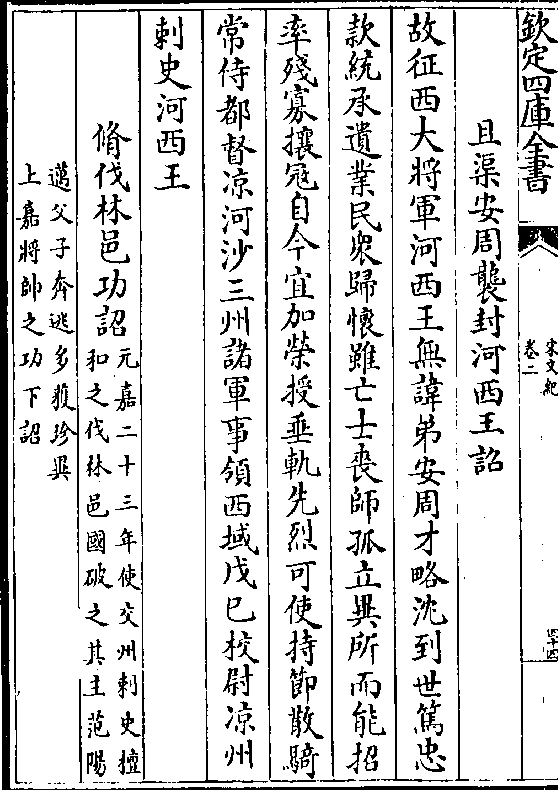 欽定四庫全書
宋文紀
卷二
四十四
且渠安周襲封河西王詔
故征西大將軍河西王無諱弟安周才略沈到世篤忠
款統承遺業民衆歸懷雖亡士喪師孤立異所而能招
率殘寡攘寇自今宜加榮授垂軌先烈可使持節散騎
常侍都督涼河沙三州諸軍事領西域戊巳校尉涼州
刺史河西王
脩伐林邑功詔
元嘉二十三年使交州刺史擅
和之伐林邑國破之其主范陽
邁父子奔逃多獲珍異
上嘉將帥之功下詔